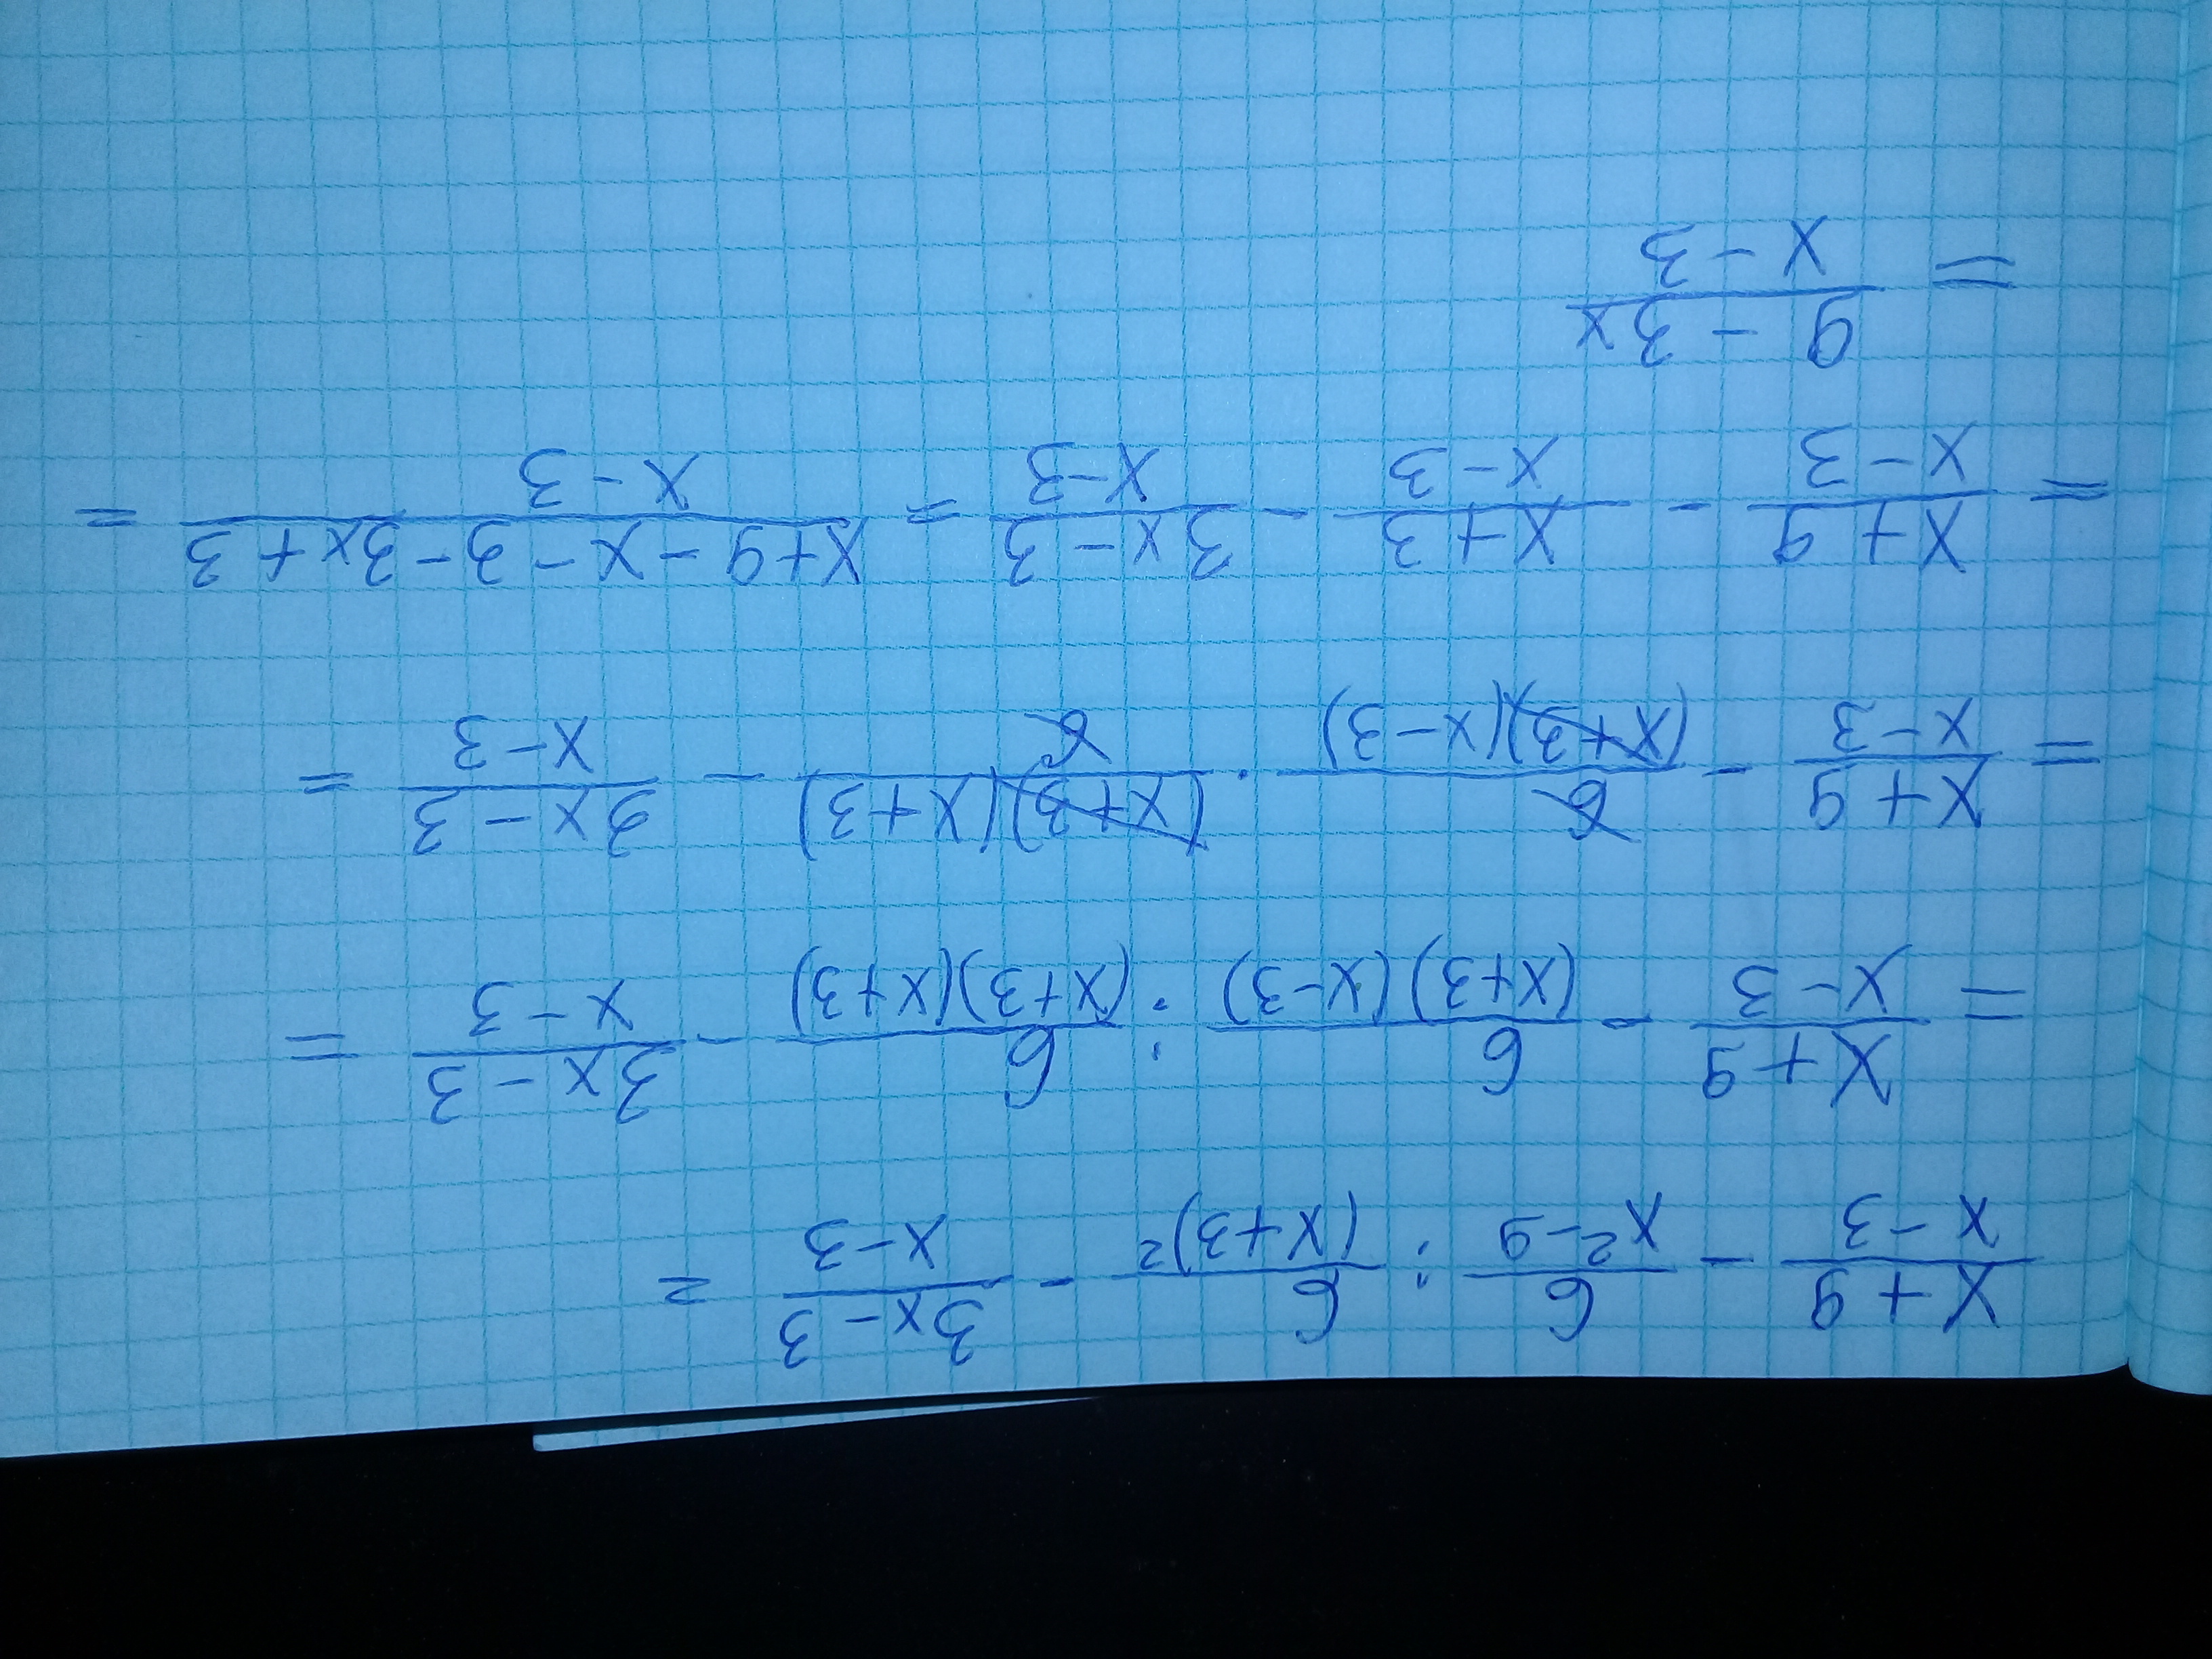 (x+9)/(x-3) - 6/(x²-9) : 6/(x+3)² - (3x-3)/(x-3) =
= (x+9)/(x-3) - 6/((x+3)(x-3)) : 6/((x+3)(x+3)) - (3x-3)/(x-3) =
= (x+9)/(x-3) - 6/((x+3)(x-3)) · ((x+3)(x+3))/6 - (3x-3)/(x-3) =
= (x+9)/(x-3) - (x+3)/(x-3) - (3x-3)/(x-3) = (x+9-x-3-3x+3)/(x-3) =
= (9-3x)/(x-3)